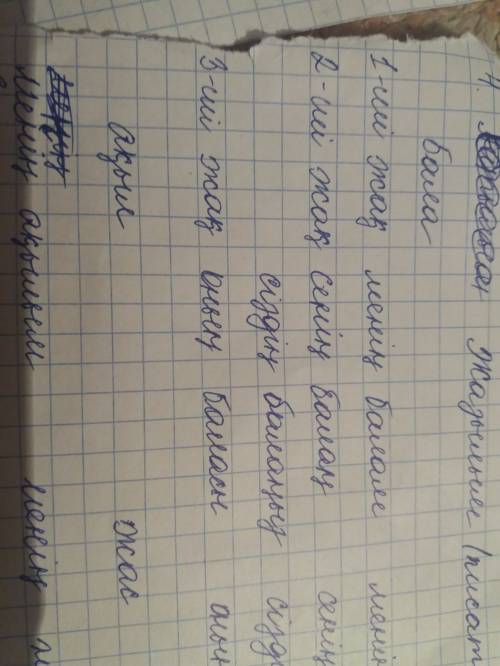 Жазылым (писат
бала
1-ші жақ менің балам мені
2-ші жақ сенің балаң сенің
сіздің балаңыз сізд
3-ші жақ оның баласы оны
ақыл жас
менің ақылым менің